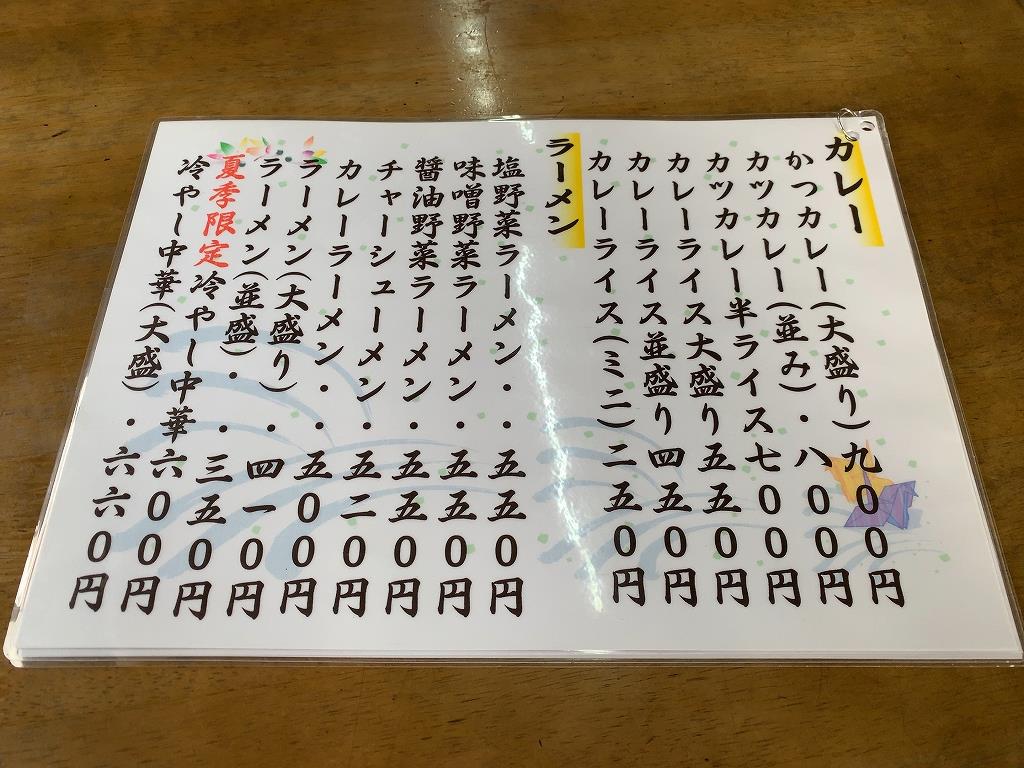 カレー
かつカレー(大盛り)九00円
カツカレー(並み)・八00円
カツカレー半ライス七00円
カレーライス大盛り五五0円
カレーライス並盛り四五0円
カレーライス(ミニ)二五0円
ラーメン
塩野菜ラーメン・・五五0円
味噌野菜ラーメン・五五0円
醤油野菜ラーメン・五五0円
チャーシューメン・五二0円
カレーラーメン・・五00円
ラーメン(大盛り)・四一0円
ラーメン(並盛)・・三五0円
夏季限定冷やし中華六00円
冷やし中華(大盛)・六六0円